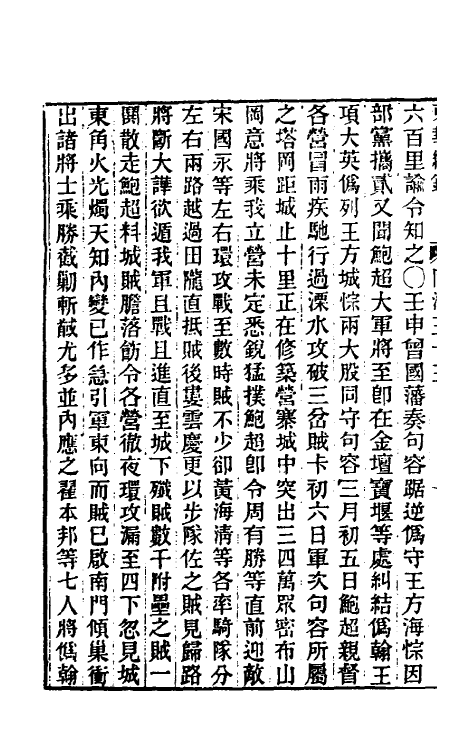 六百里諭令知之〇壬申曾國藩奏句容踞逆僞守王方海悰因
部黨攜貳又聞鮑超大軍將至卽在金壇寶堰等處糾結僞翰王
項大英僞列王方城悰兩大股同守句容三月初五日鮑超親督
各營冒雨疾馳行過溧水攻破三岔賊卡初六日軍次句容所屬
之塔岡距城止十里正在修築營寨城中突出三四萬眾密布山
岡意將乘我立營未定悉銳猛撲鮑超卽令周有勝等直前迎敵
宋國永等左右環攻戰至數時賊不少卻黃海淸等各率騎隊分
左右兩路越過田隴直抵賊後婁雲慶更以步隊佐之賊見歸路
將斷大譁欲遁我軍且戰且進直至城下殲賊數千附壘之賊一
鬨散走鮑超料城賊膽落飭令各營徹夜環攻漏至四下忽見城
東角火光燭天知內變已作急引軍東向而賊已啟南門傾巢衝
出諸將士乘勝截剿斬馘尤多並內應之翟本邦等七人將僞翰